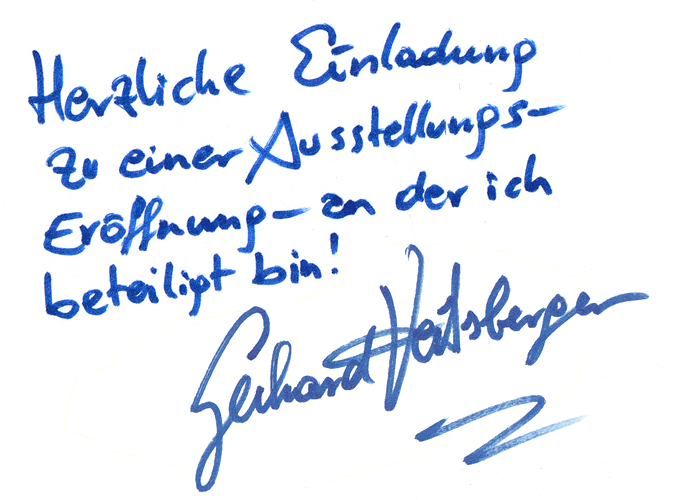 Herzliche Einladung
zu einer Ausstellungs-
Eröffnung - an der ich
beteiligt bin!
Gerhard Veitsberger